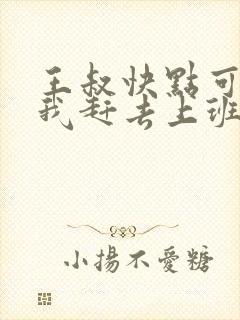 王叔快點可
我赶去上班
小揚不愛糖